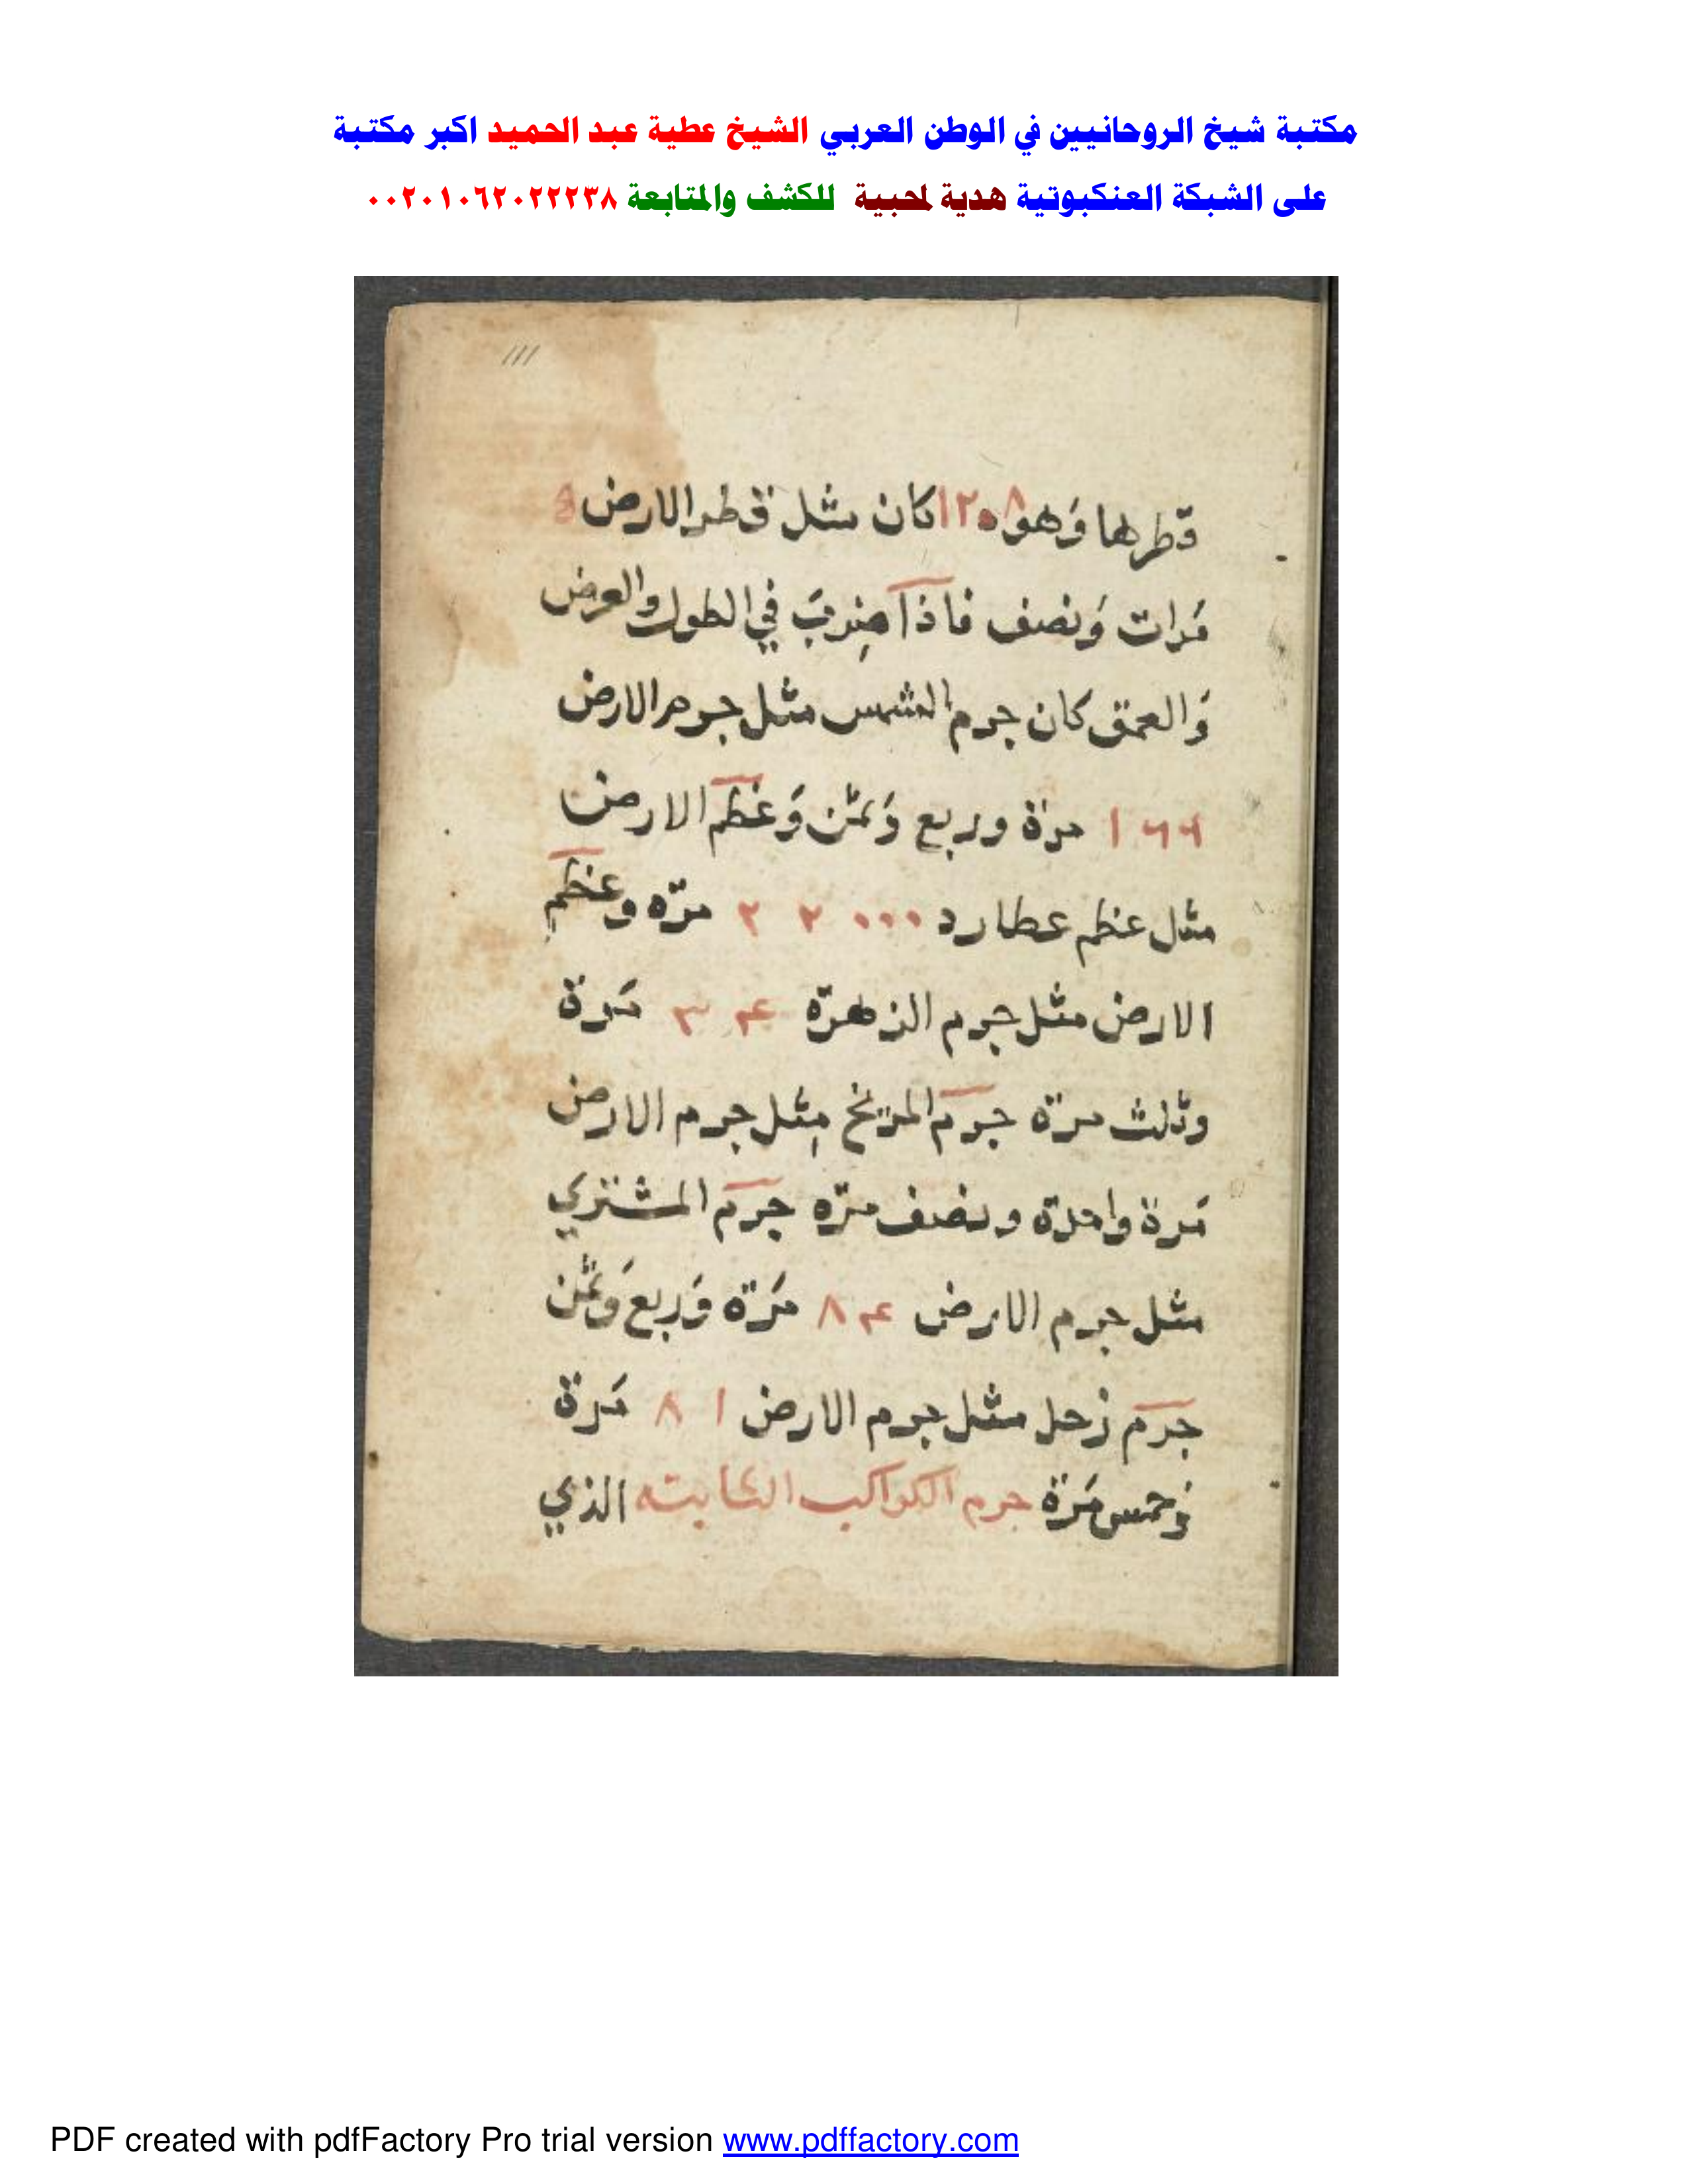 مكتبة شيخ الروحانيين في الوطن العربي الشيخ عطية عبد الحميد اكبر مكتبة
على الشبكة العنكبوتية هدية لمحبية للكشف والمتابعة ٠٠٢٠١٠٦٢٠٢٢٢٣٨
111
قطرها وَهو كان مثل قطر الارض
مَرات وَنصف فاذا ضربَ في الطول والعرض
وَالعمق كان جرم الشمس مثل جرم الارض
١٦٦ مرة وربع وَثمن وَعظم الارض
مثل عظم عطارد ٢٢٠٠٠ مرّه وعظم
الارض مثل جرم الزهرة ٣٤ مَرة
وثلث مرّه جرم المريخ مثل جرم الارض
مَرة واحدة ونصف مرّه جرم المشتري
مثل جرم الارض ٨٤ مَرّه وَربع وَثمن
جرم زحل مثل جرم الارض ٨١ مَرة
وَخمس مَرة جرم الكواكب الثابته الذي
PDF created with pdfFactory Pro trial version www.pdffactory.com